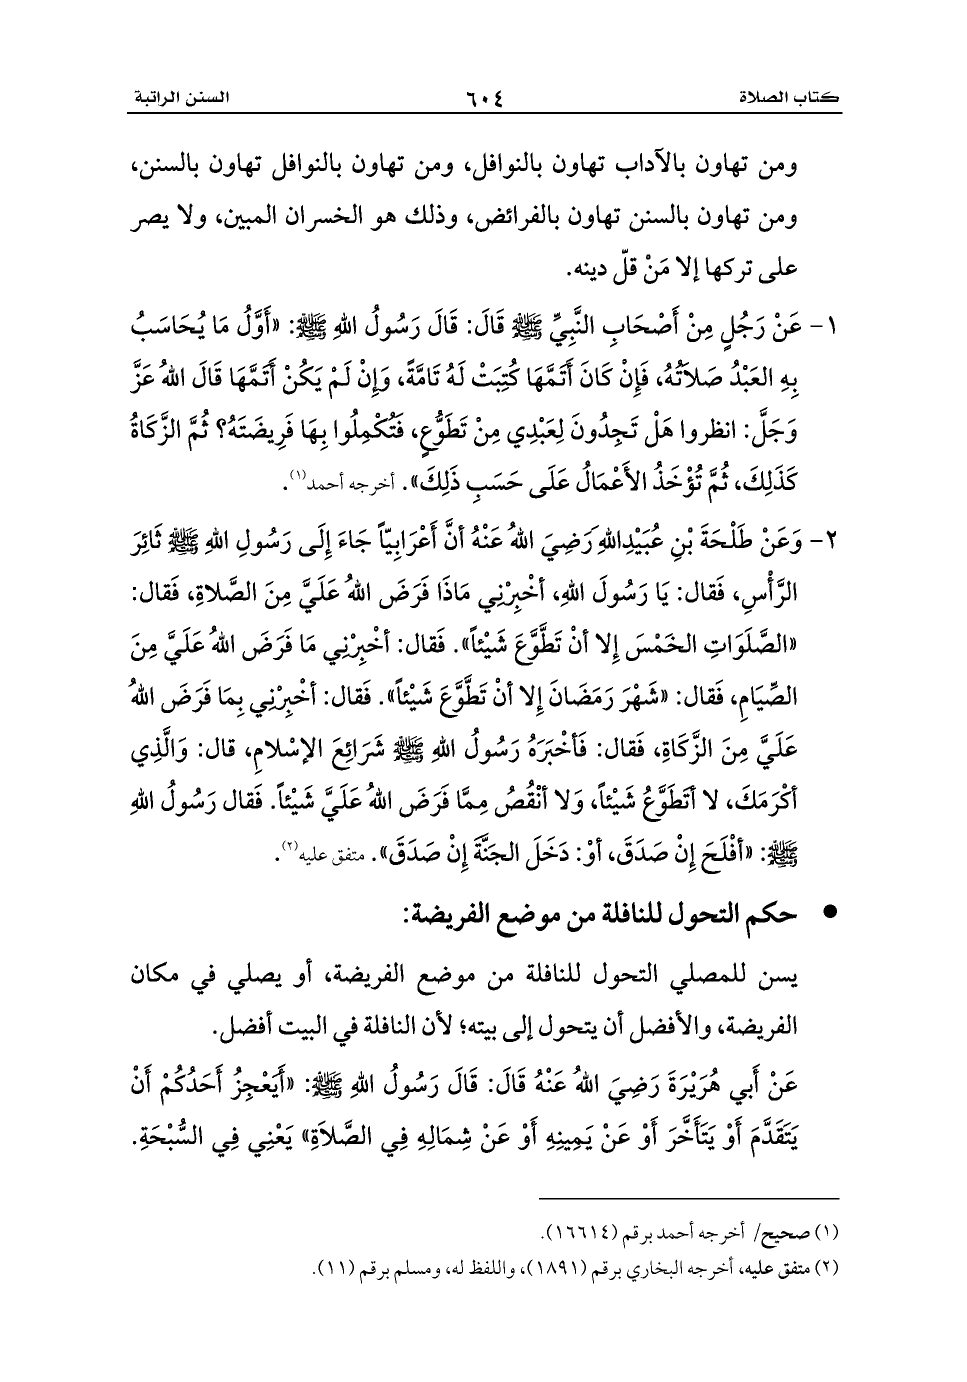 كتاب الصلاة ٦٠٤ السنن الراتبة
ومن تهاون بالآداب تهاون بالنوافل، ومن تهاون بالنوافل تهاون بالسنن،
ومن تهاون بالسنن تهاون بالفرائض، وذلك هو الخسران المبين، ولا يصر
على تركها إلا مَنْ قلّ دينه.
١- عَنْ رَجُلٍ مِنْ أَصْحَابِ النَّبِيِّ ﷺ قَالَ: قَالَ رَسُولُ اللهِ ﷺ: «أَوَّلُ مَا يُحَاسَبُ
بِهِ العَبْدُ صَلاَتُهُ، فَإِنْ كَانَ أَتَمَّهَا كُتِبَتْ لَهُ تَامَّةً، وَإِنْ لَمْ يَكُنْ أَتَمَّهَا قَالَ اللهُ عَزَّ
وَجَلَّ: انظروا هَلْ تَجِدُونَ لِعَبْدِي مِنْ تَطَوُّعٍ، فَتُكْمِلُوا بِهَا فَرِيضَتَهُ؟ ثُمَّ الزَّكَاةُ
كَذَلِكَ، ثُمَّ تُؤْخَذُ الأَعْمَالُ عَلَى حَسَبِ ذَلِكَ». أخرجه أحمد(١).
٢- وَعَنْ طَلْحَةَ بْنِ عُبَيْدِاللهِ رَضِيَ اللهُ عَنْهُ أنَّ أَعْرَابِيّاً جَاءَ إِلَى رَسُولِ اللهِ ﷺ ثَائِرَ
الرَّأْسِ، فَقال: يَا رَسُولَ اللهِ، أخْبِرْنِي مَاذَا فَرَضَ اللهُ عَلَيَّ مِنَ الصَّلاةِ، فَقال:
«الصَّلَوَاتِ الخَمْسَ إِلا أنْ تَطَّوَّعَ شَيْئاً». فَقال: أخْبِرْنِي مَا فَرَضَ اللهُ عَلَيَّ مِنَ
الصِّيَامِ، فَقال: «شَهْرَ رَمَضَانَ إِلا أنْ تَطَّوَّعَ شَيْئاً». فَقال: أخْبِرْنِي بِمَا فَرَضَ اللهُ
عَلَيَّ مِنَ الزَّكَاةِ، فَقال: فَأخْبَرَهُ رَسُولُ اللهِ ﷺ شَرَائِعَ الإسْلامِ، قال: وَالَّذِي
أكْرَمَكَ، لا أتَطَوَّعُ شَيْئاً، وَلا أنْقُصُ مِمَّا فَرَضَ اللهُ عَلَيَّ شَيْئاً. فَقال رَسُولُ اللهِ
ﷺ: «أفْلَحَ إِنْ صَدَقَ، أوْ: دَخَلَ الجَنَّةَ إِنْ صَدَقَ». متفق عليه(٢).
• حكم التحول للنافلة من موضع الفريضة:
يسن للمصلي التحول للنافلة من موضع الفريضة، أو يصلي في مكان
الفريضة، والأفضل أن يتحول إلى بيته؛ لأن النافلة في البيت أفضل.
عَنْ أَبي هُرَيْرَةَ رَضِيَ اللهُ عَنْهُ قَالَ: قَالَ رَسُولُ اللهِ ﷺ: «أَيَعْجِزُ أَحَدُكُمْ أَنْ
يَتَقَدَّمَ أَوْ يَتَأَخَّرَ أَوْ عَنْ يَمِينِهِ أَوْ عَنْ شِمَالِهِ فِي الصَّلاَةِ» يَعْنِي فِي السُّبْحَةِ.
(١) صحيح/ أخرجه أحمد برقم (١٦٦١٤).
(٢) متفق عليه، أخرجه البخاري برقم (١٨٩١)، واللفظ له، ومسلم برقم (١١).